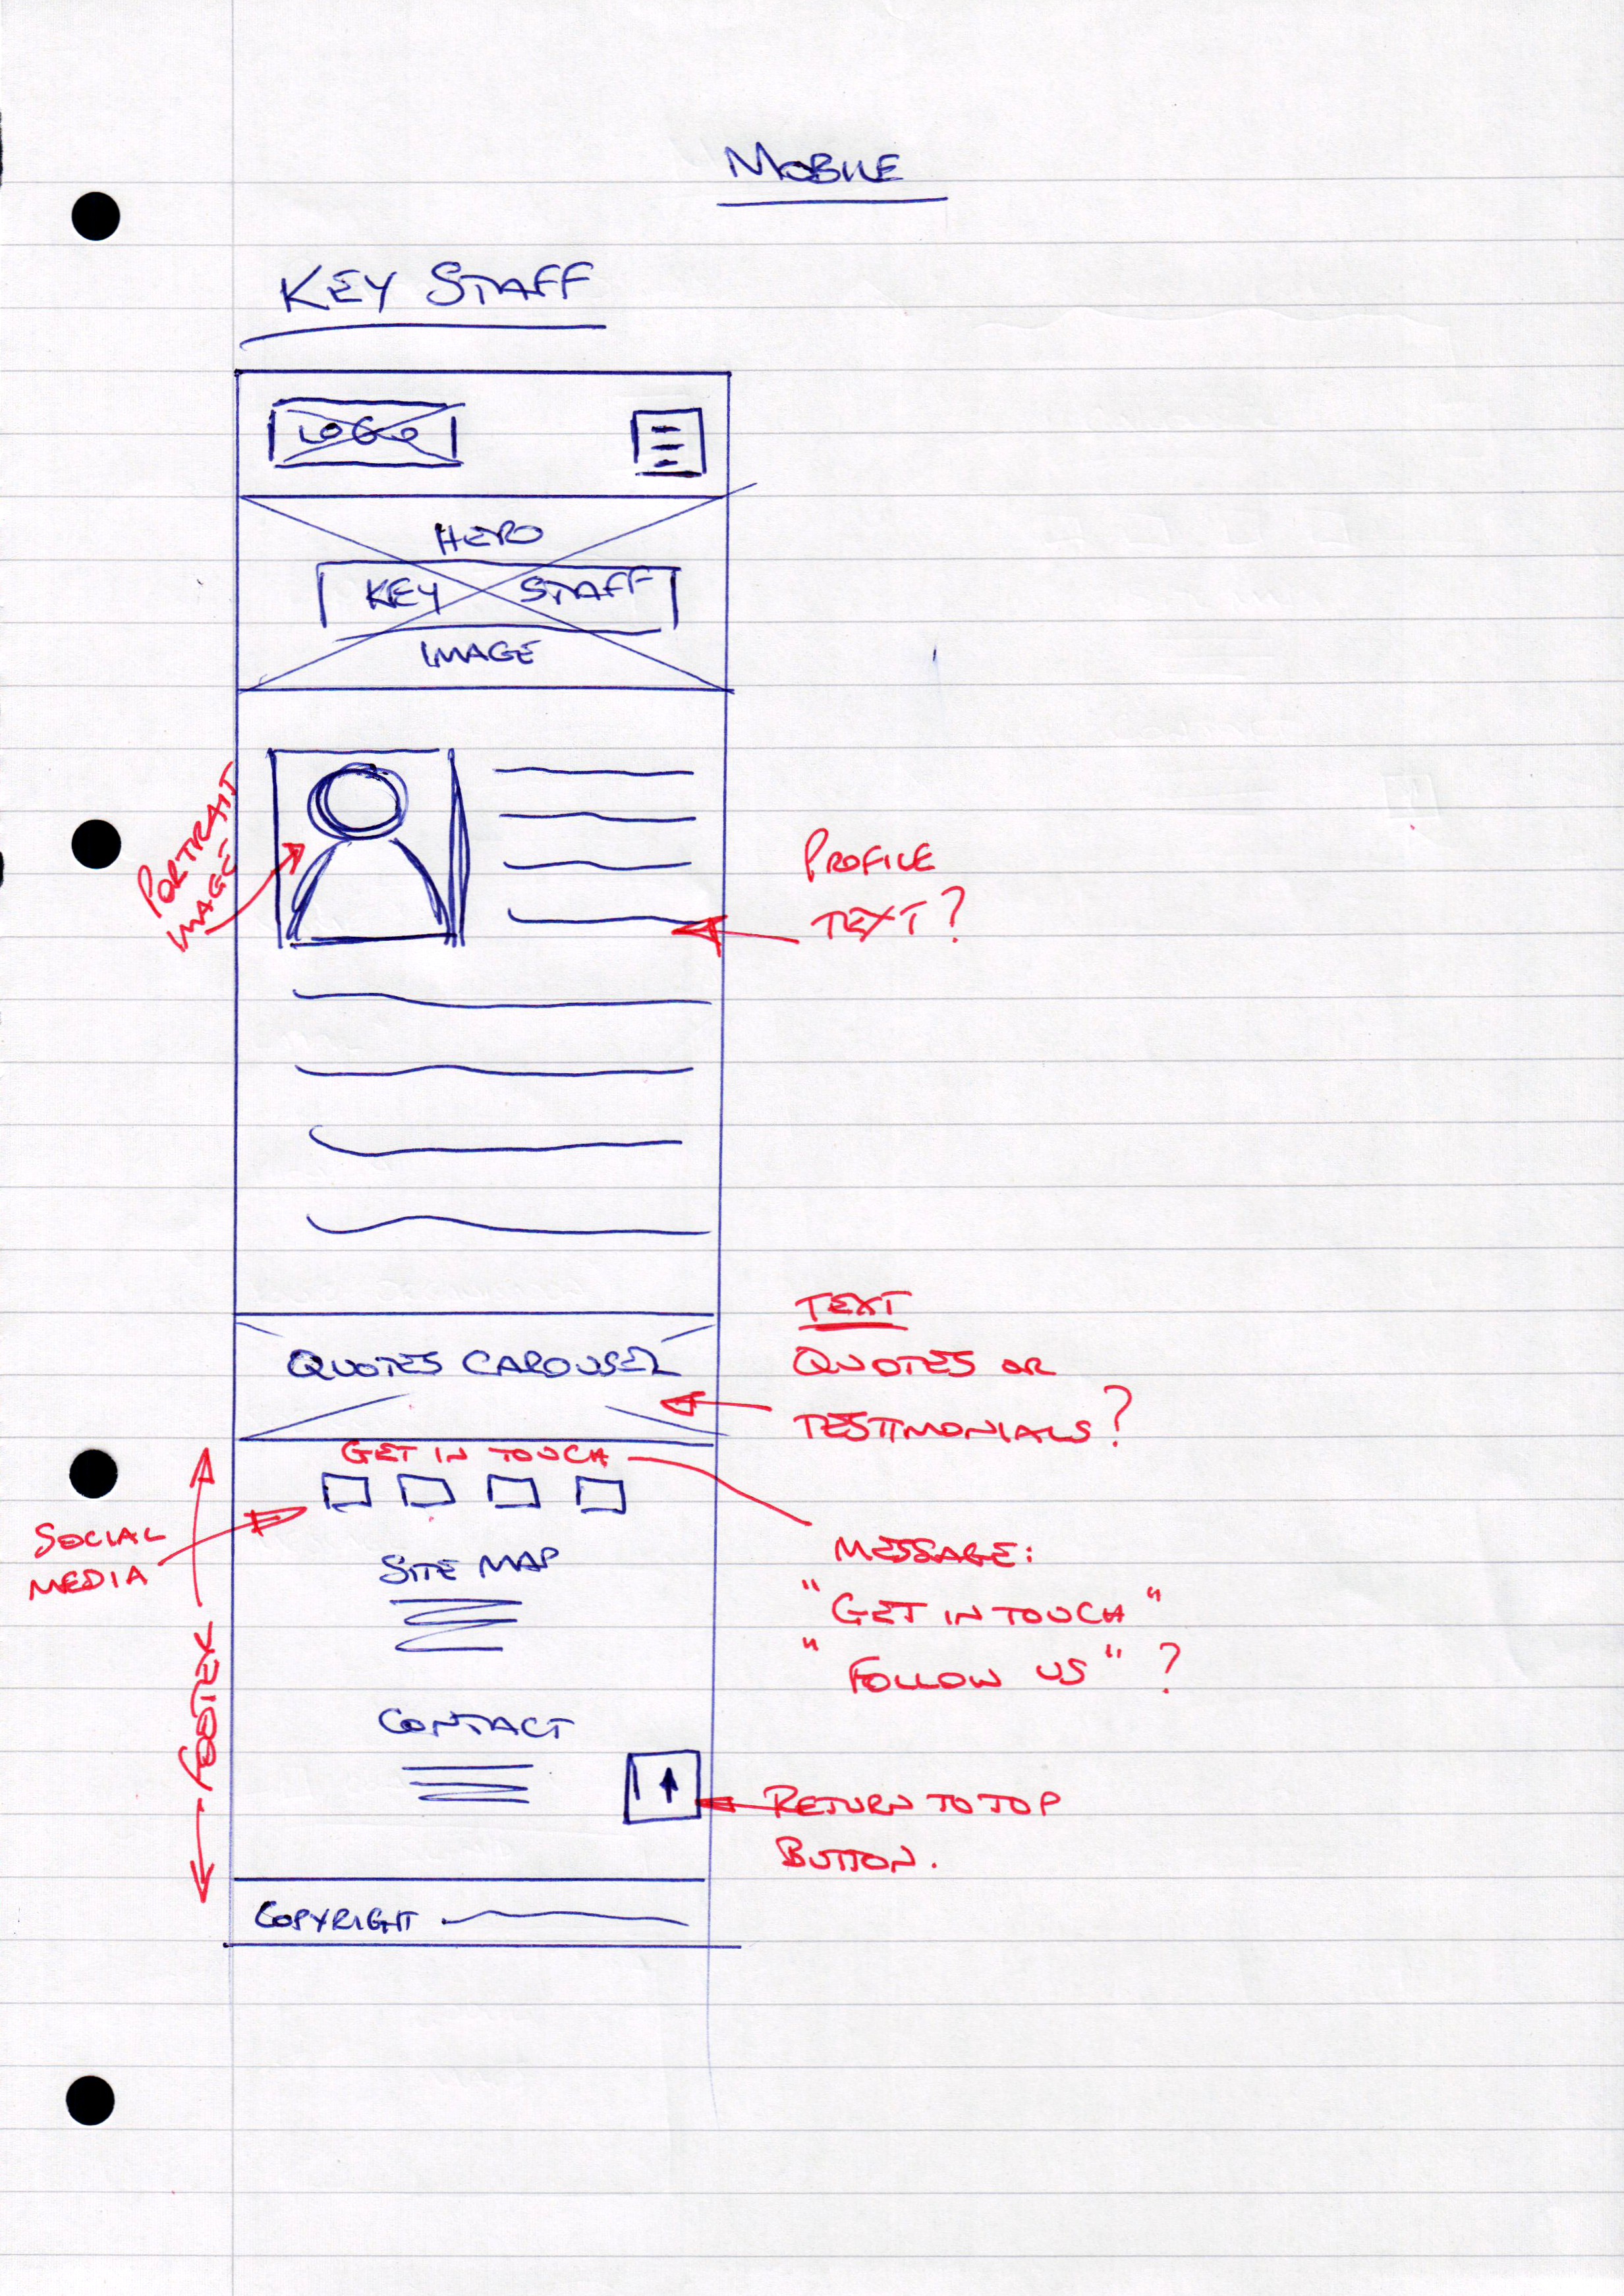 MOBILE
KEY STAFF
LOGO
HERO
KEY STAFF
IMAGE
PORTRAIT
IMAGE
PROFILE
TEXT?
QUOTES CAROUSEL
TEXT
QUOTES OR
TESTIMONIALS?
GET IN TOUCH
SOCIAL
MEDIA
MESSAGE:
"GET IN TOUCH"
"FOLLOW US"?
SITE MAP
FOOTER
CONTACT
RETURN TO TOP
BUTTON.
COPYRIGHT